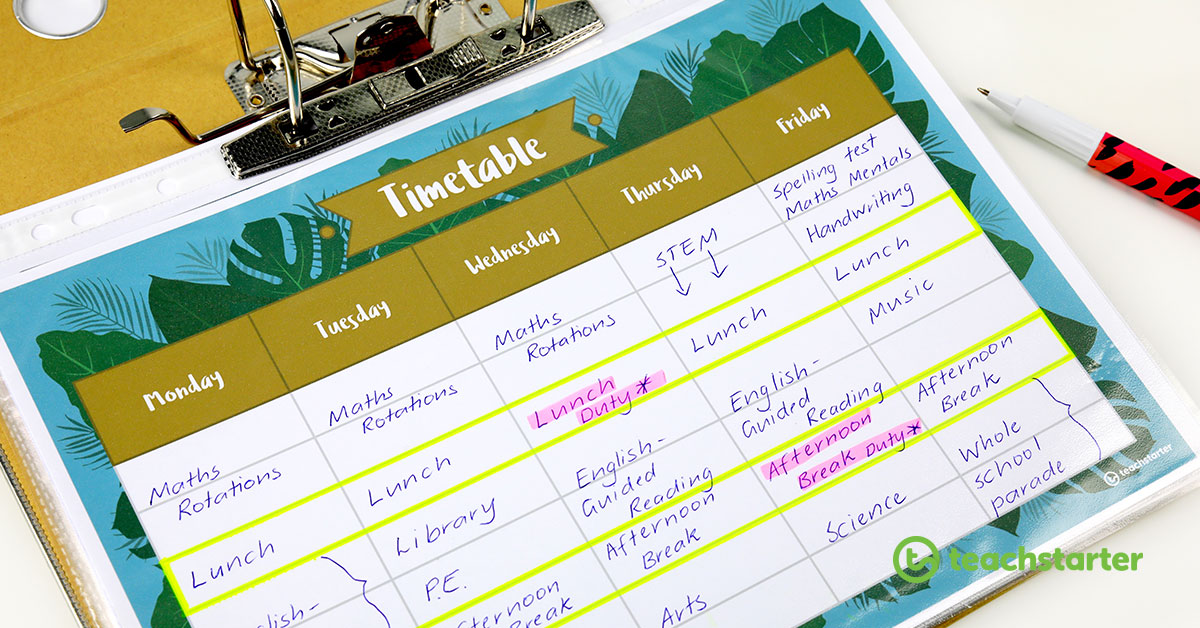 Timetable
Monday
Maths
Rotations
Lunch
glish-
Tuesday
Maths
Rotations
Lunch
Library
P.E.
ternoon
Break
Wednesday
Maths
Rotations
Lunch
Duty*
English-
Guided
Reading
Afternoon
Break
Arts
Thursday
STEM
Lunch
English-
Guided
Reading
Afternoon
Break Duty*
Science
Friday
Spelling test
Maths Mentals
Handwriting
Lunch
Music
Afternoon
Break
Whole
school
parade
teachstarter
teachstarter